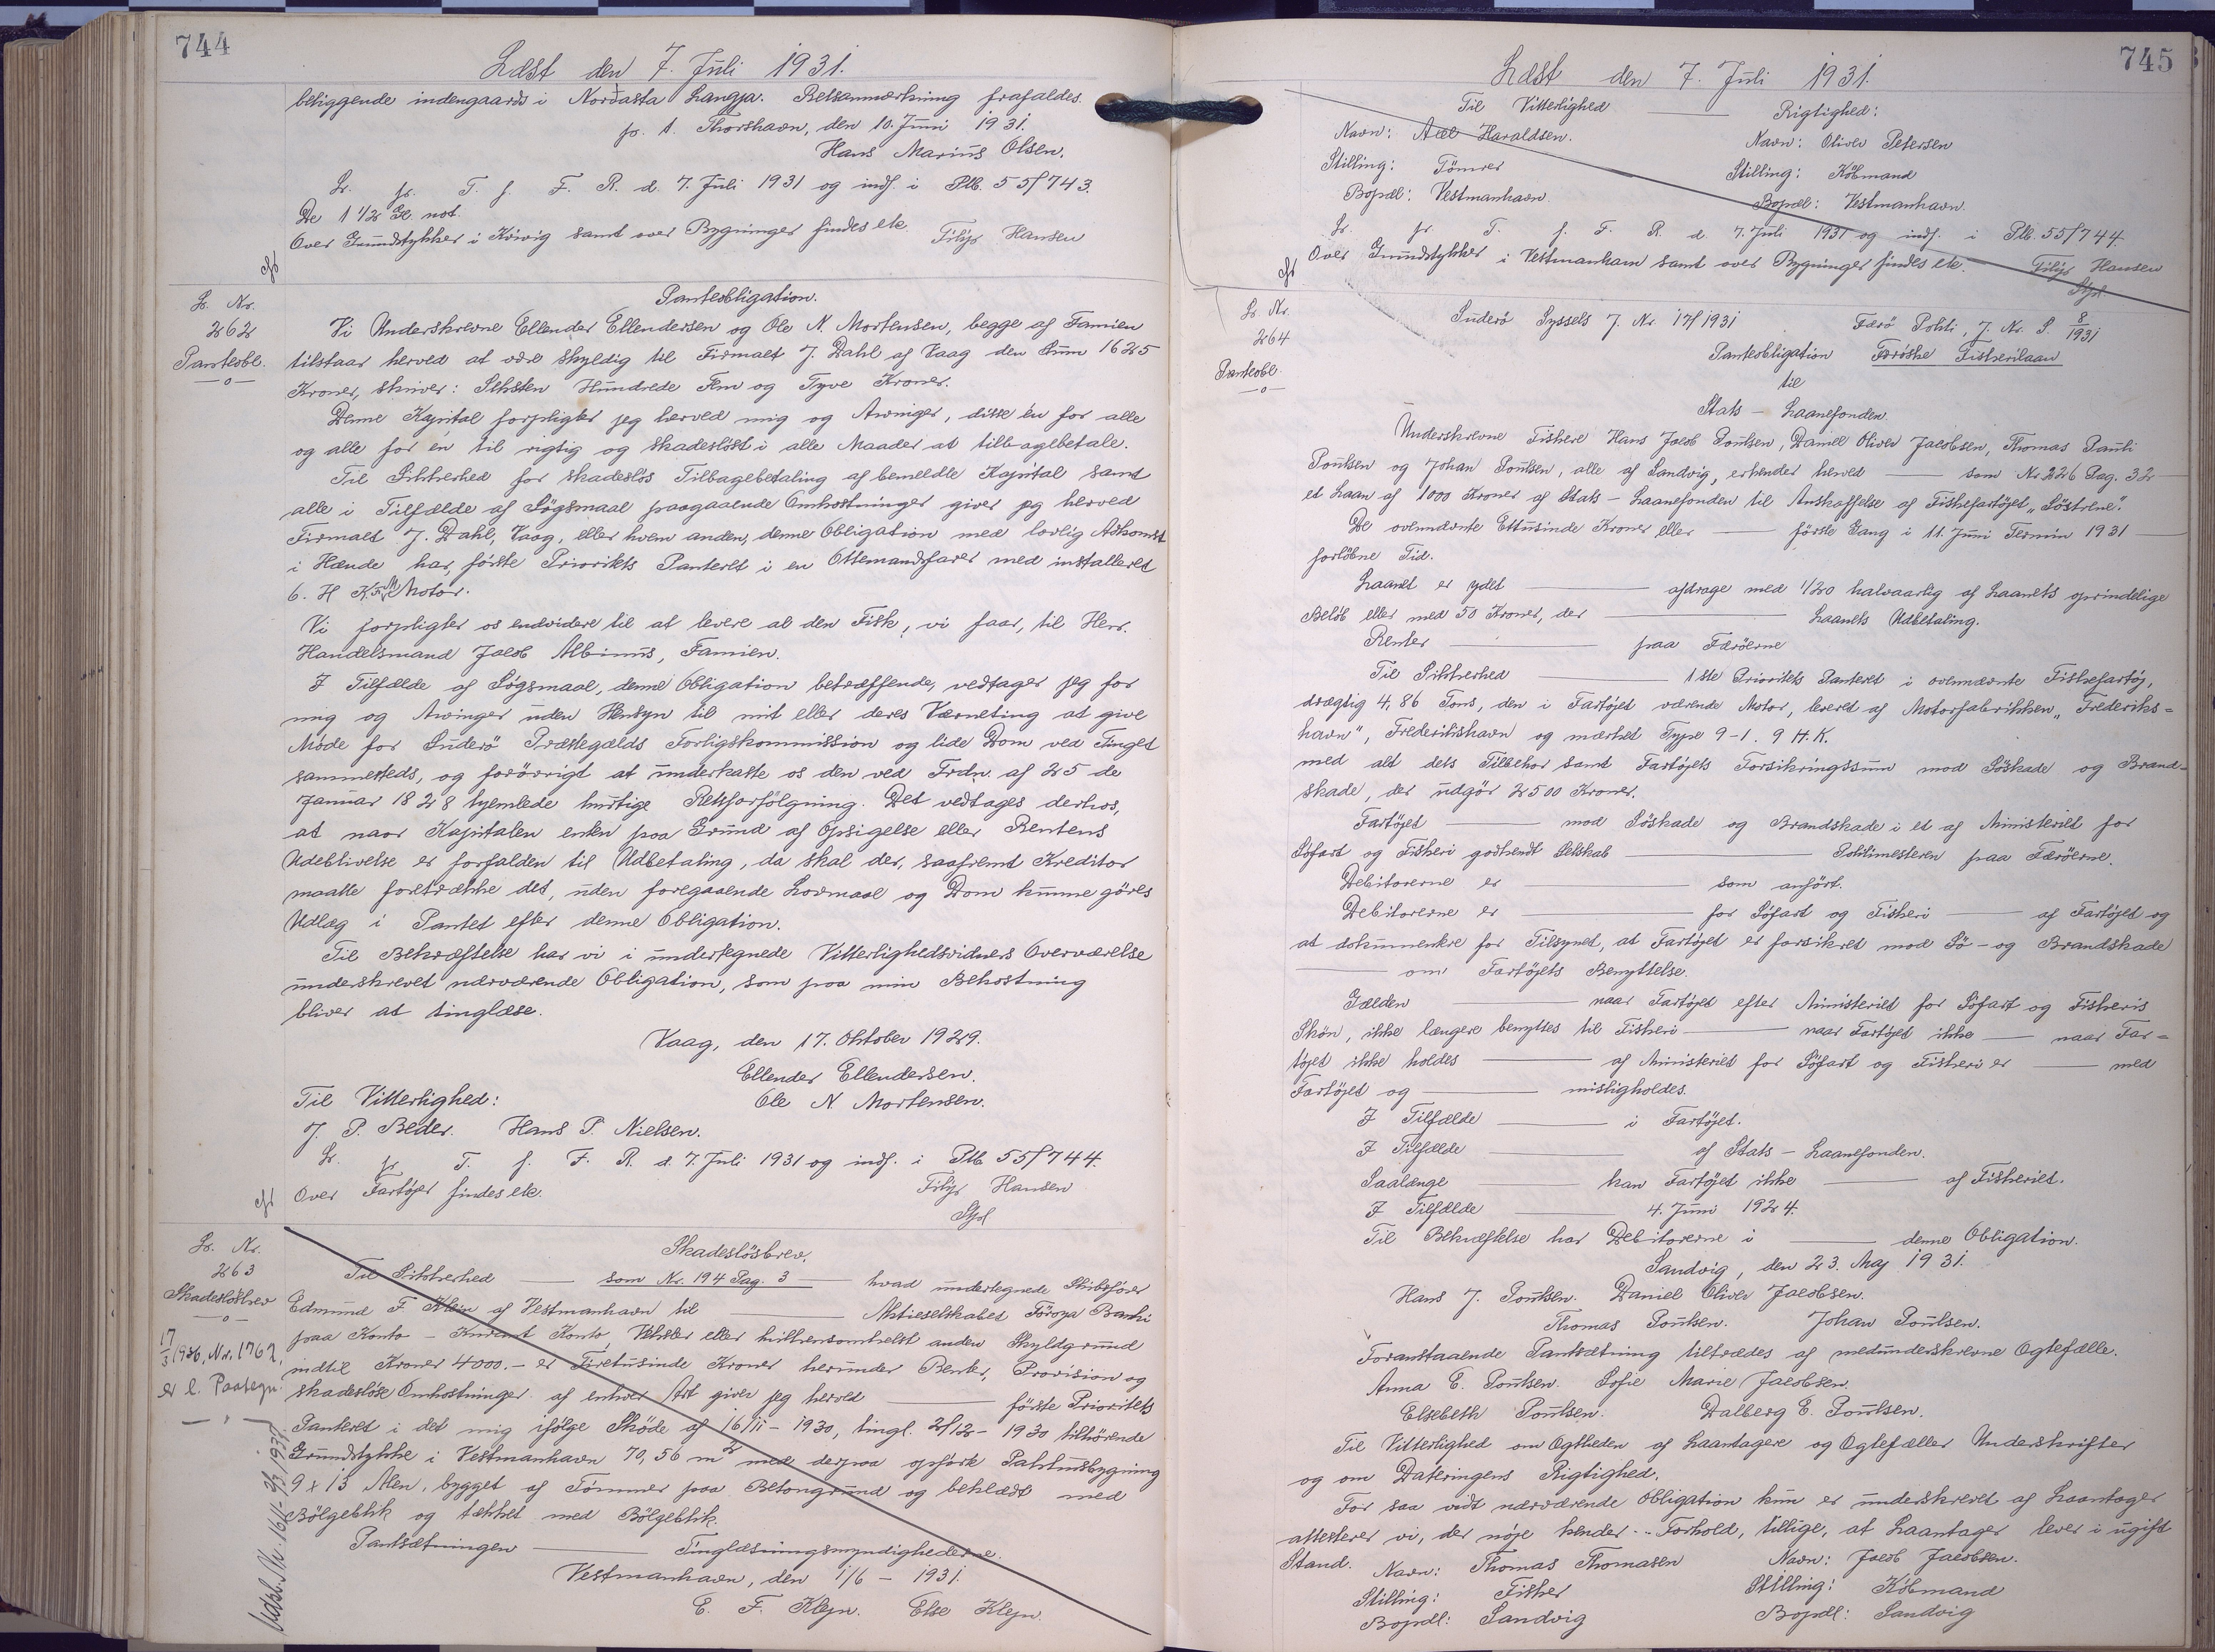 744
Læst den 7. Juli 1931.
beliggende indengaards i Nordasta Langja. Retsanmærkning frafaldes.
p. t. Thorshavn, den 10. Juni 1931.
Hans Marius Olsen.
Lr. pr. T. f. F. R. d. 7. Juli 1931 og indf. i Ptb. 55/743.
De 1 1/2 Gl. not.
Over Grundstykker i Kvivig samt over Bygninger findes etc.
Filip Hansen
Lr. Nr.
262
Panteobl.
Panteobligation.
Vi Underskrevne Ellender Ellendersen og Ole N. Mortensen, begge af Famien
tilstaar herved at være skyldig til Firmaet J. Dahl af Vaag den Sum 1625
Kroner, skriver: Seksten Hundrede Fem og Tyve Kroner.
Denne Kapital forpligter jeg herved mig og Arvinger, disse én for alle
og alle for én til rigtig og skadesløst i alle Maader at tilbagebetale.
Til Sikkerhed for skadesløs Tilbagebetaling af bemeldte Kapital samt
alle i Tilfælde af Søgsmaal paagaaende Omkostninger giver jeg herved
Firmaet J. Dahl, Vaag, eller hvem anden, denne Obligation med lovlig Adkomst
i Hænde har, første Prioritets Panteret i en Ottemandsfarer med installeret
6. H K. Motor.
Vi forpligter os endvidere til at levere al den Fisk, vi faar, til Herr.
Handelsmand Jacob Albinus, Famien.
I Tilfælde af Søgsmaal, denne Obligation betræffende, vedtager jeg for
mig og Arvinger uden Hensyn til mit eller deres Værneting at give
Møde for Suderø Præstegælds Forligskommission og lide Dom ved Tinget
sammesteds, og forøvrigt at underkaste os den ved Frdn. af 25 de
Januar 1828 hjemlede hurtige Retsforfølgning. Det vedtages derhos,
at naar Kapitalen enten paa Grund af Opsigelse eller Rentens
Udeblivelse er forfalden til Udbetaling, da skal der, saafremt Kreditor
maatte foretrække det, uden foregaaende Lovmaal og Dom kunne gøres
Udlæg i Pantet efter denne Obligation.
Til Bekræftelse har vi i undertegnede Vitterlighedsvidners Overværelse
underskrevet nærværende Obligation, som paa min Bekostning
bliver at tinglæse.
Vaag, den 17. Oktober 1929.
Ellender Ellendersen.
Til Vitterlighed: Ole N. Mortensen.
J. P. Beder. Hans P. Nielsen.
Lr. pr. T. f. F. R. d. 7. Juli 1931 og indf. i Ptb 55/744.
Over Fartøjer findes etc.
Filip Hansen
Stfd
Lr. Nr.
263
Skadesløsbrev
17/3 1936, Nr. 1762,
er l. Paategn.
Skadesløsbrev.
Til Sikkerhed — som Nr. 194 Pag. 3 — hvad undertegnede Skibsfører
Edmund F. Klein af Vestmanhavn til — Aktieselskabet Føroya Banki
paa Konto - Kurant Konto, Veksler eller hvilkensomhelst anden Skyldgrund
indtil Kroner 4000.- er Firetusinde Kroner herunder Renter, Provision og
skadesløse Omkostninger af enhver Art giver jeg herved — første Prioritets
Panteret i det mig ifølge Skøde af 16/11 - 1930, tingl. 2/12 - 1930 tilhørende
Grundstykke i Vestmanhavn 70,56 m² med derpaa opførte Pakhusbygning
9 x 13 Alen, bygget af Tømmer paa Betongrund og beklædt med
Bølgeblik og tækket med Bølgeblik.
Pantsætningen — Tinglæsningsmyndighederne.
Vestmanhavn, den 1/6 - 1931.
E. F. Klejn. Else Klejn.
745
Læst den 7. Juli 1931.
Til Vitterlighed — Rigtighed:
Navn: Axel Haraldsen. Navn: Oliver Petersen
Stilling: Tömrer Stilling: Købmand
Bopæl: Vestmanhavn. Bopæl: Vestmanhavn.
Lr. pr. T. f. F. R. d. 7. Juli 1931 og indf. i Ptb. 55/744.
Over Grundstykker i Vestmanhavn samt over Bygninger findes etc.
Filip Hansen
Stfd
Lr Nr.
264
Panteobl.
Suderø Syssels J. Nr. 17/1931 Færø Politi, J. Nr. P. 8/1931
Panteobligation Færøske Fiskerilaan
til
Stats - Laanefonden.
Underskrevne Fiskere Hans Jacob Poulsen, Daniel Oliver Jacobsen, Thomas Pauli
Poulsen og Johan Poulsen, alle af Sandvig, erkender herved — som Nr. 226 Pag. 32 —
et Laan af 1000 Kroner af Stats - Laanefonden til Anskaffelse af Fiskefartøjet „Søstrene".
De ovennævnte Ettusinde Kroner eller — første Gang i 11. Juni Termin 1931 —
forløbne Tid.
Laanet er ydet — afdrage med 1/20 halvaarlig af Laanets oprindelige
Beløb eller med 50 Kroner, der — Laanets Udbetaling.
Renter — paa Færøerne
Til Sikkerhed — 1ste Prioritets Panteret i ovennævnte Fiskefartøj,
drægtig 4,86 Tons, den i Fartøjet værende Motor, leveret af Motorfabrikken „Frederiks=
havn", Frederikshavn og mærket Type 9-1. 9 H.K.
med alt dets Tilbehør samt Fartøjets Forsikringssum mod Søskade og Brand=
skade, der udgør 2500 Kroner.
Fartøjet — mod Søskade og Brandskade i et af Ministeriet for
Søfart og Fiskeri godkendt Selskab — Politimesteren paa Færøerne.
Debitorerne er — som anført.
Debitorerne er — for Søfart og Fiskeri — af Fartøjet og
at dokumentere for Tilsynet, at Fartøjet er forsikret mod Sø- og Brandskade
— om Fartøjets Benyttelse.
Gælden — naar Fartøjet efter Ministeriet for Søfart og Fiskeris
Skøn, ikke længere benyttes til Fiskeri — naar Fartøjet ikke — naar Far=
tøjet ikke holdes — af Ministeriet for Søfart og Fiskeri er — med
Fartøjet og — misligholdes.
I Tilfælde — i Fartøjet.
I Tilfælde — af Stats - Laanefonden.
Saalænge — kan Fartøjet ikke — af Fiskeriet.
I Tilfælde — 4. Juni 1924.
Til Bekræftelse har Debitorerne i — denne Obligation.
Sandvig, den 23. Maj 1931.
Hans J. Poulsen. Daniel Oliver Jacobsen.
Thomas Poulsen. Johan Poulsen.
Foranstaaende Pantsætning tiltrædes af medunderskrevne Ægtefælle.
Anna E. Poulsen. Sofie Marie Jacobsen.
Elsebeth Poulsen. Dalberg E. Poulsen.
Til Vitterlighed om Ægtheden af Laantagere og Ægtefæller Underskrifter
og om Dateringens Rigtighed.
For saa vidt nærværende Obligation kun er underskrevet af Laantager
attesterer vi, der nøje kender .. Forhold, tillige, at Laantager lever i ugift
Stand. Navn: Thomas Thomasen Navn: Jacob Jacobsen.
Stilling: Fisker Stilling: Købmand
Bopæl: Sandvig Bopæl: Sandvig